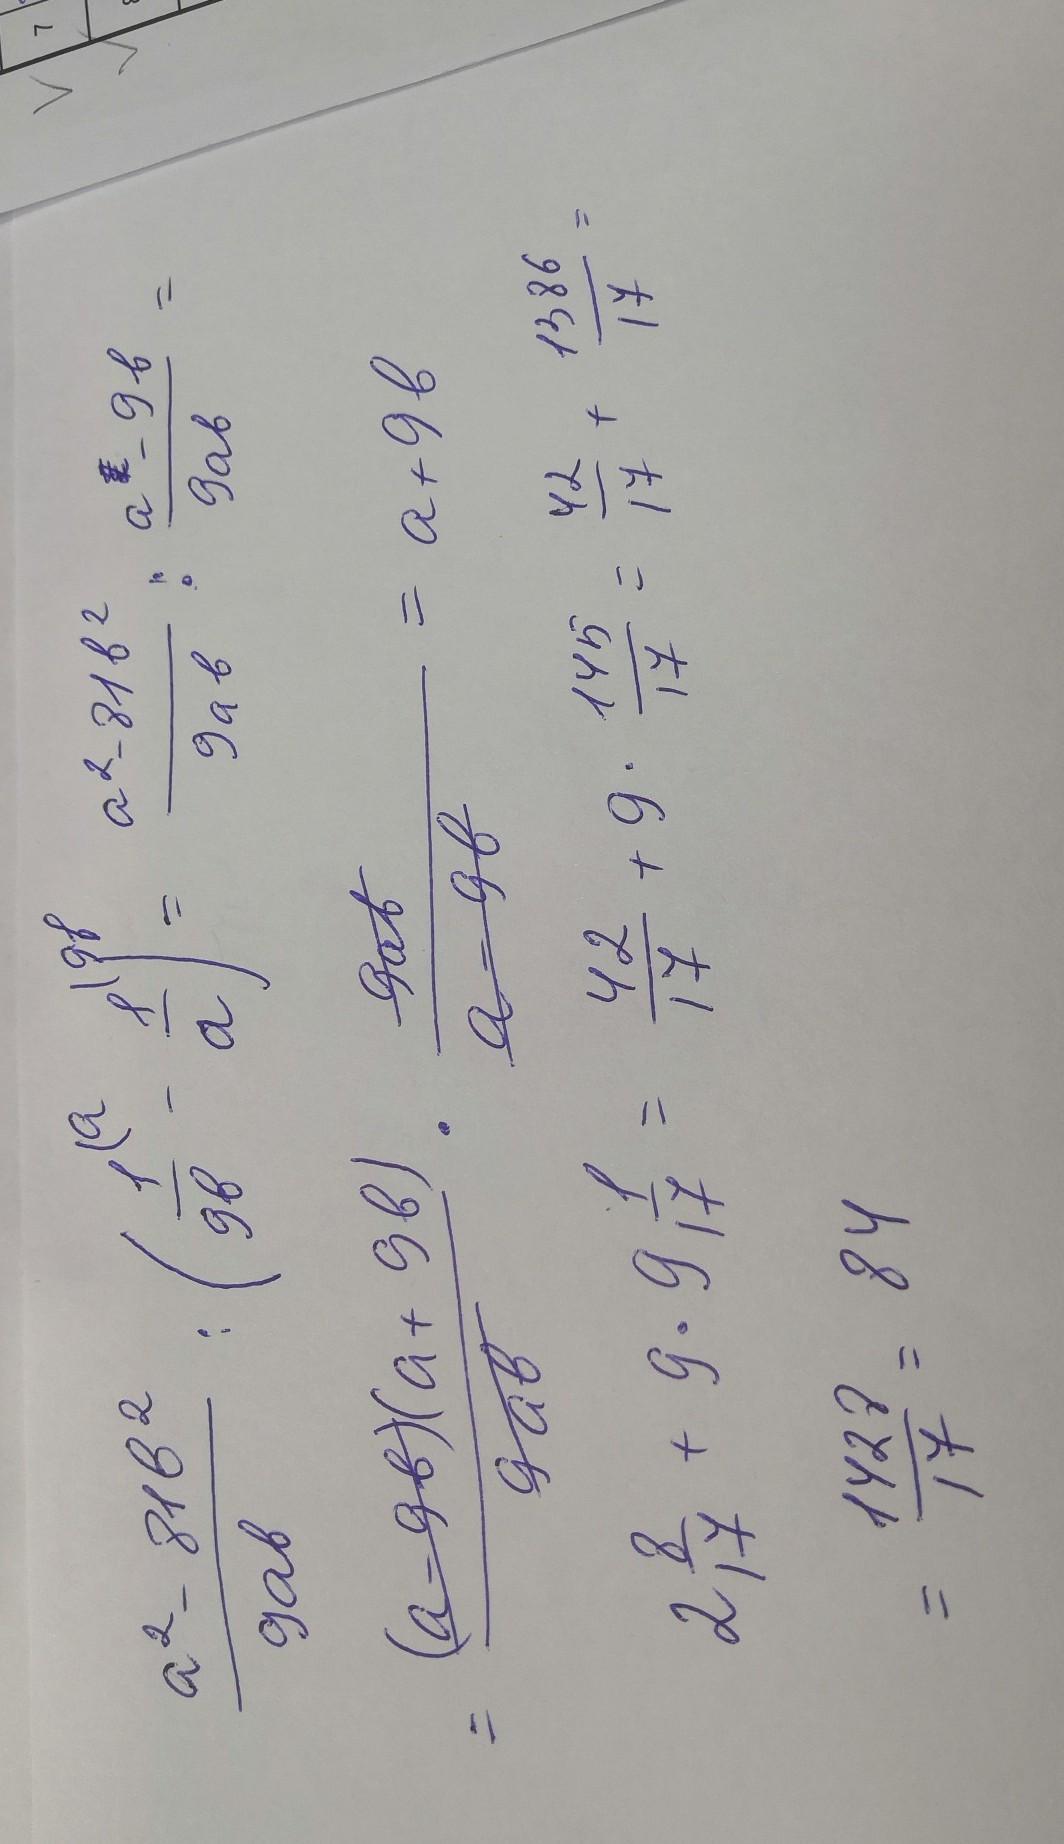 7
a²-81b²/9ab : (1/9b (a - 1/a (9b) = a²-81b²/9ab : a-9b/9ab =
= (a-9b)(a+9b)/9ab · 9ab/a-9b = a+9b
2 8/17 + 9·9 1/17 = 42/17 + 9· 145/17 = 42/17 + 1386/17 =
= 1428/17 = 84